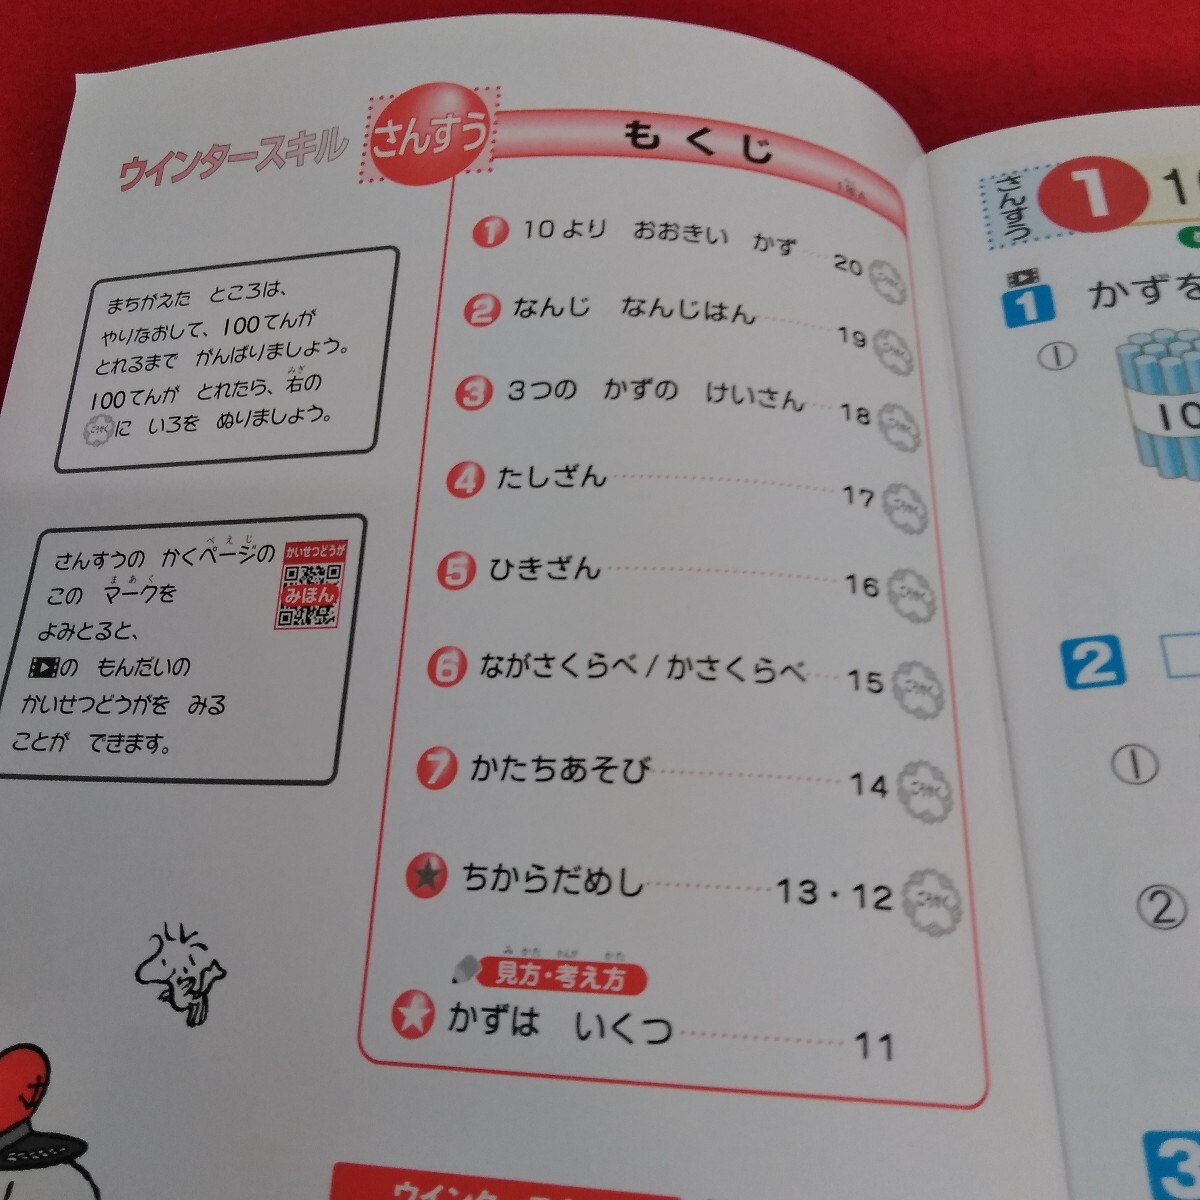 ウインタースキル さんすう もくじ
まちがえた ところは、
やりなおして、100てんが
とれるまで がんばりましょう。
100てんが とれたら、右の
みぎ
ごうかく に いろを ぬりましょう。
さんすうの かくページの
ぺえじ
この マークを
まあく
よみとると、
の もんだいの
かいせつどうがを みる
ことが できます。
かいせつどうが
みほん
1 10より おおきい かず 20 ごうかく
2 なんじ なんじはん 19 ごうかく
3 3つの かずの けいさん 18 ごうかく
4 たしざん 17 ごうかく
5 ひきざん 16 ごうかく
6 ながさくらべ/かさくらべ 15 ごうかく
7 かたちあそび 14 ごうかく
★ ちからだめし 13・12 ごうかく
み かた かんが かた
見方・考え方
★ かずは いくつ 11
さんすう
1
1 かずを
①
10
2
①
②
3